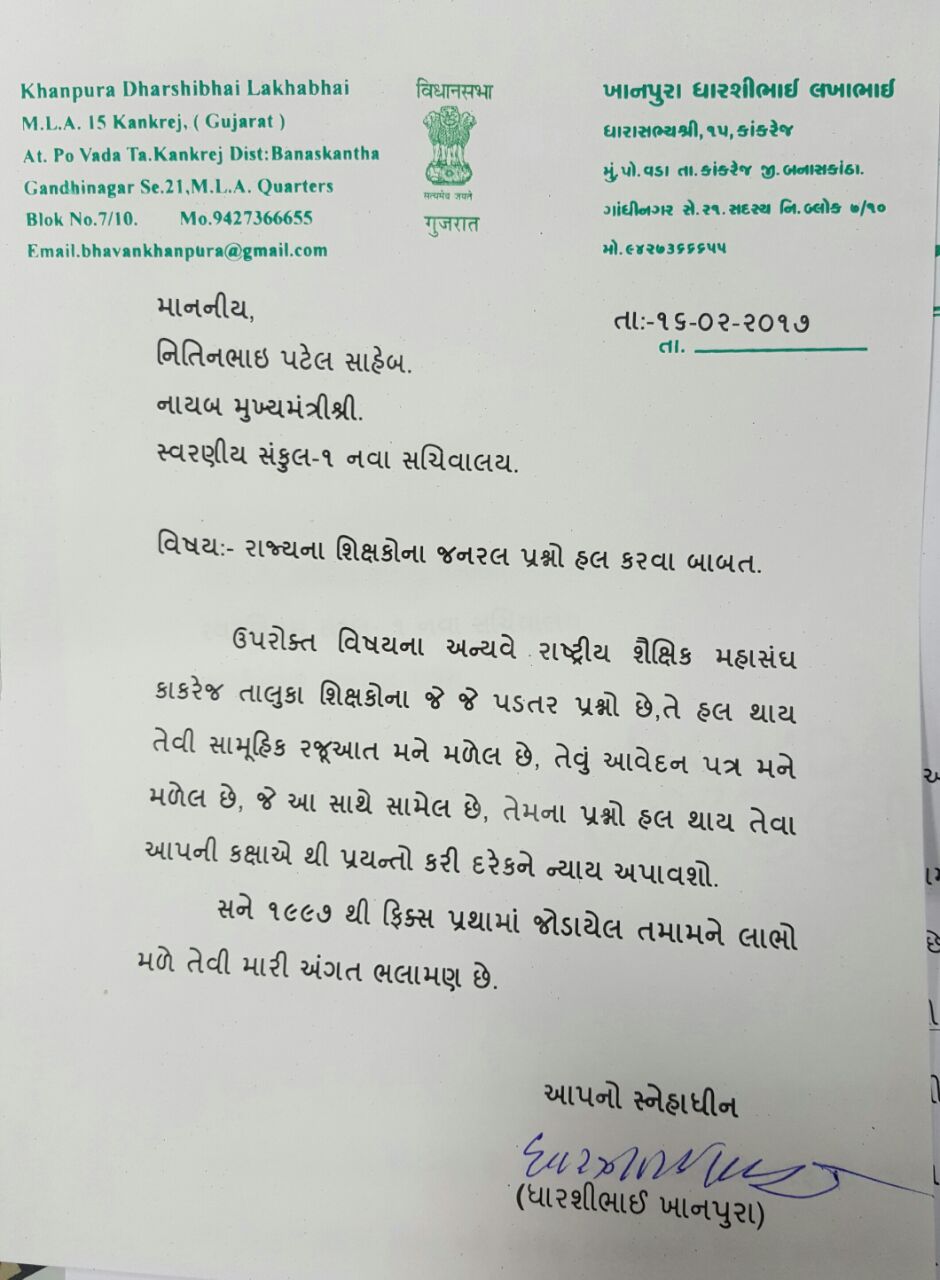 Khanpura Dharshibhai Lakhabhai
M.L.A. 15 Kankrej, ( Gujarat )
At. Po Vada Ta.Kankrej Dist:Banaskantha
Gandhinagar Se.21,M.L.A. Quarters
Blok No.7/10. Mo.9427366655
Email.bhavankhanpura@gmail.com
विधानसभा
सत्यमेव जयते
गुजरात
ખાનપુરા ધારશીભાઈ લખાભાઈ
ધારાસભ્યશ્રી, ૧૫, કાંકરેજ
મું.પો.વડા તા.કાંકરેજ જી.બનાસકાંઠા.
ગાંધીનગર સે.૨૧.સદસ્ય નિ.બ્લોક ૭/૧૦
મો.૯૪૨૭૩૬૬૬૫૫
તા:-૧૬-૦૨-૨૦૧૭
તા.
માનનીય,
નિતિનભાઇ પટેલ સાહેબ.
નાયબ મુખ્યમંત્રીશ્રી.
સ્વરણીય સંકુલ-૧ નવા સચિવાલય.
વિષય:- રાજ્યના શિક્ષકોના જનરલ પ્રશ્નો હલ કરવા બાબત.
ઉપરોક્ત વિષયના અન્યવે રાષ્ટ્રીય શૈક્ષિક મહાસંઘ
કાકરેજ તાલુકા શિક્ષકોના જે જે પડતર પ્રશ્નો છે,તે હલ થાય
તેવી સામૂહિક રજૂઆત મને મળેલ છે, તેવું આવેદન પત્ર મને
મળેલ છે, જે આ સાથે સામેલ છે, તેમના પ્રશ્નો હલ થાય તેવા
આપની કક્ષાએ થી પ્રયન્તો કરી દરેકને ન્યાય અપાવશો.
સને ૧૯૯૭ થી ફિક્સ પ્રથામાં જોડાયેલ તમામને લાભો
મળે તેવી મારી અંગત ભલામણ છે.
આપનો સ્નેહાધીન
(ધારશીભાઈ ખાનપુરા)